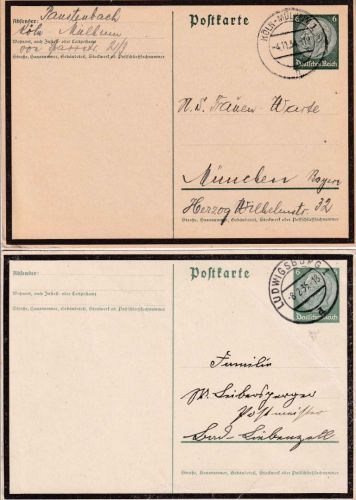 Absender: Paustenbach
Köln Mülheim
Wohnort, auch Zustell- oder Leitpostamt
Straße, Hausnummer, Gebäudeteil, Stockwerk oder Postschließfachnummer
Postkarte
6
Deutsches Reich
KÖLN-MÜLHEIM
N.S. Frauen-Warte
München Bayern
Herzog Wilhelmstr. 32
Straße, Hausnummer, Gebäudeteil, Stockwerk oder Postschließfachnummer
Absender:
Wohnort, auch Zustell- oder Leitpostamt
Straße, Hausnummer, Gebäudeteil, Stockwerk oder Postschließfachnummer
Postkarte
6
Deutsches Reich
LUDWIGSBURG
-8.2.35.-18
Familie
W. Leibersperger
Postmeister
Bad-Liebenzell
Straße, Hausnummer, Gebäudeteil, Stockwerk oder Postschließfachnummer